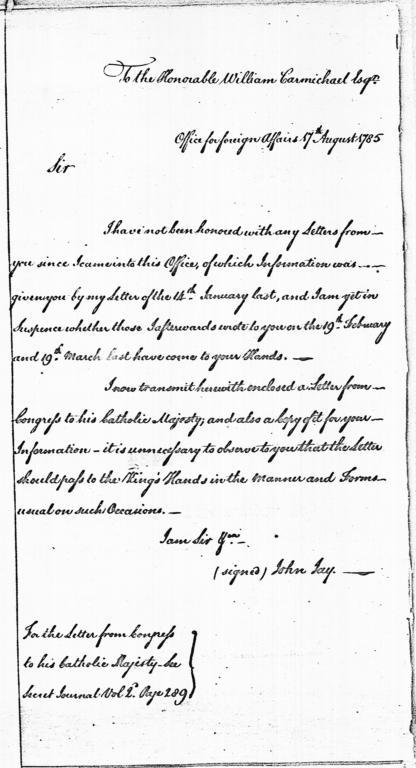 To the Honorable William Carmichael Esqr.
Office for foreign Affairs 17th August 1785
Sir
I have not been honored with any Letters from
you since I came into this Office, of which Information was
given you by my Letter of the 14th January last, and I am yet in
Suspence whether those I afterwards wrote to you on the 19th February
and 19th March last have come to your Hands. —
I now transmit herewith enclosed a Letter from
Congress to his Catholic Majesty; and also a Copy of it for your
Information – it is unnecessary to observe to you that the Letter
should pass to the King's Hands in the Manner and Forms
usual on such Occasions. —
I am Sir &ca. —
(signed) John Jay. —
For the Letter from Congress
to his Catholic Majesty – See
Secret Journal Vol 2d. Page 289